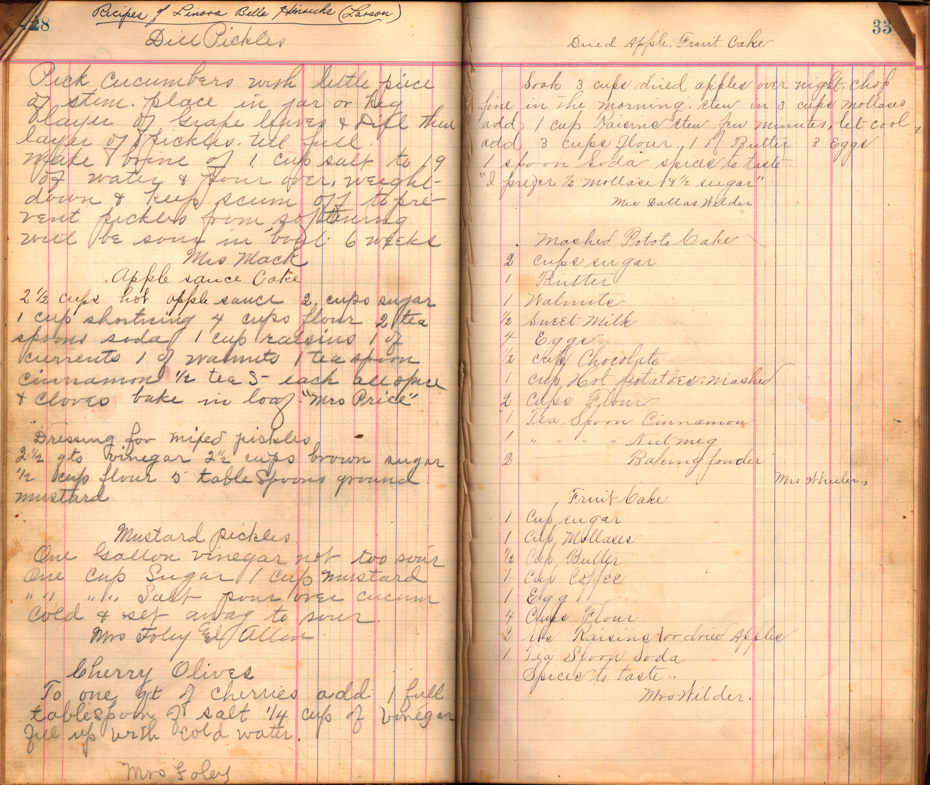 28
Recipes of Linora Belle Hinrichs (Larson)
Dill Pickles
Pick cucumbers with little piece
of stem. place in jar or keg
layer of Grape leaves & Dill then
layer of Pickles. till full.
Make brine of 1 cup salt to 9
of water & pour over. weight-
down & keep scum off to pre-
vent pickles from softening
will be sour in bout 6 weeks
Mrs Mack
Apple sauce Cake
2 1/2 cups hot apple sauce 2 cups sugar
1 cup shortning 4 cups flour 2 tea
spoons soda 1 cup raisins 1 of
currents 1 of walnuts 1 tea spoon
cinnamon 1/2 tea S- each allspice
& cloves bake in loaf "Mrs Price"
Dressing for mixed pickles
2 1/2 qts vinegar 2 1/2 cups brown sugar
1/2 cup flour 5 table Spoons ground
mustard
Mustard pickles
One Gallon vinegar not too sour
One cup Sugar 1 cup mustard
" " " " Salt pour over cucum
cold & set away to sour
Mrs Foley Allen
Cherry Olives
To one qt of cherries add 1 full
tablespoon of salt 1/4 cup of vinegar
fill up with cold water.
Mrs Foley
33
Dried Apple Fruit Cake
Soak 3 cups dried apples over night. chop
fine in the morning. stew in 3 cups mollases
add 1 cup Raisins stew few minutes, let cool
add 3 cups flour, 1 of Butter 3 Eggs
1 spoon Soda spices to taste
"I prefer 1/2 mollase & 1/2 sugar"
Mrs Dallas Wilder
Mashed Potato Cake
2 cups sugar
1 " Butter
1 " Walnuts
1/2 Sweet Milk
4 Eggs
1/2 cup Chocolate
1 cup Hot potatoes mashed
2 Cups Flour
1 Tea Spoon Cinnamon
1 " " Nutmeg
2 Baking powder
Mrs Wheeler,
Fruit Cake
1 Cup sugar
1 Cup Mollases
1/2 Cup Butter
1 Cup Coffee
1 Egg
4 Cups Flour
2 Raisins or dried Apples
1 Tea Spoon Soda
Spices to taste.
Mrs Wilder.